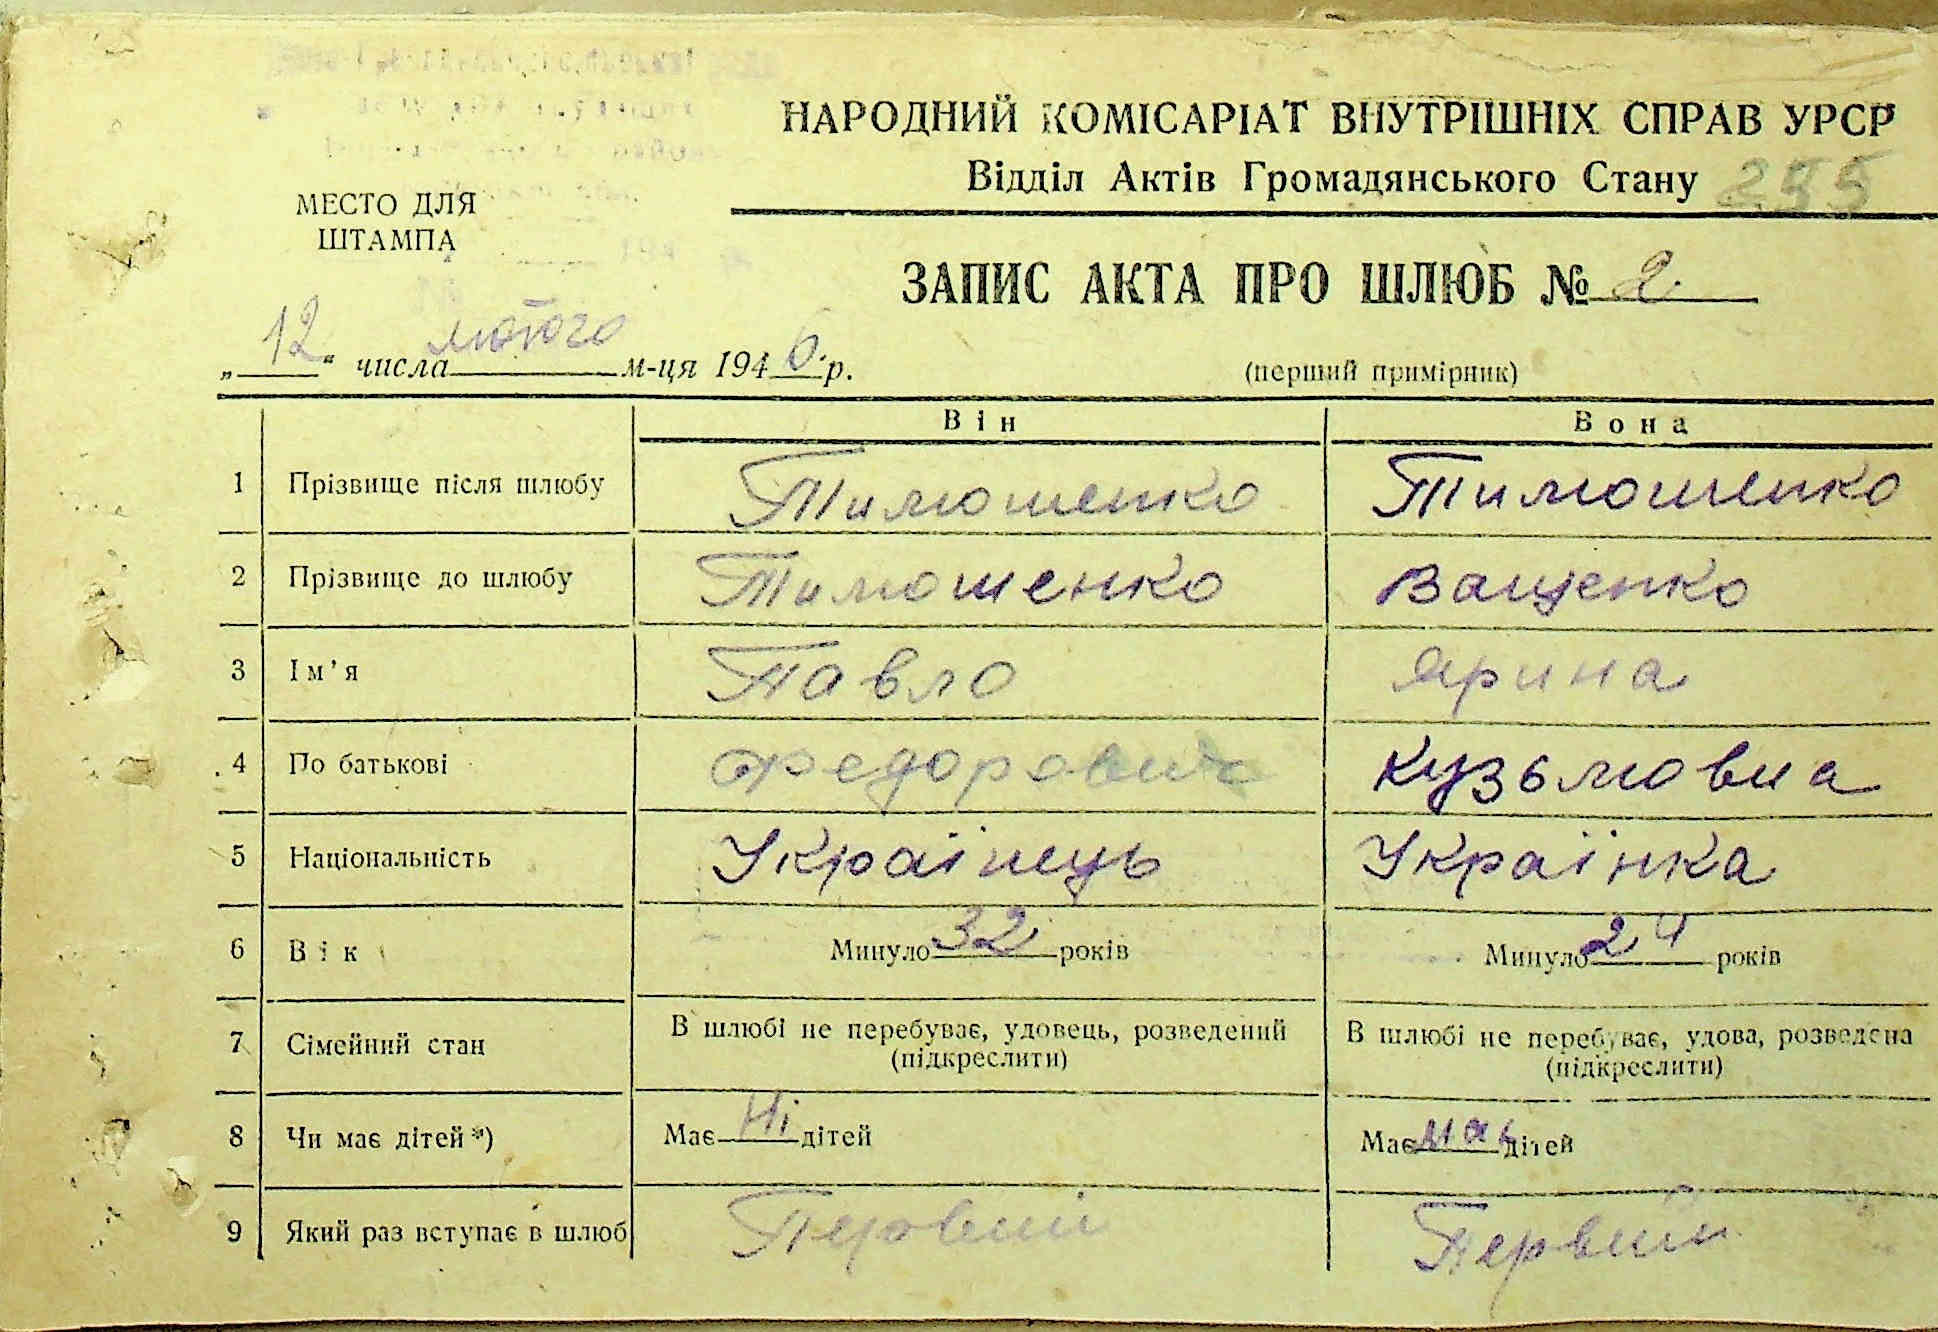 НАРОДНИЙ КОМІСАРІАТ ВНУТРІШНІХ СПРАВ УРСР
Відділ Актів Громадянського Стану 255
МЕСТО ДЛЯ
ШТАМПА
ЗАПИС АКТА ПРО ШЛЮБ № 2
„12“ числа лютого м-ця 1946 р.
(перший примірник)
Він Вона
1 Прізвище після шлюбу Тимошенко Тимошенко
2 Прізвище до шлюбу Тимошенко Ващенко
3 Ім’я Павло Ярина
4 По батькові Федорович Кузьмовна
5 Національність Українець Українка
6 Вік Минуло 32 років Минуло 24 років
7 Сімейний стан В шлюбі не перебуває, удовець, розведений (підкреслити) В шлюбі не перебуває, удова, розведена (підкреслити)
8 Чи має дітей *) Має Ні дітей Має дітей
9 Який раз вступає в шлюб Первий Первий